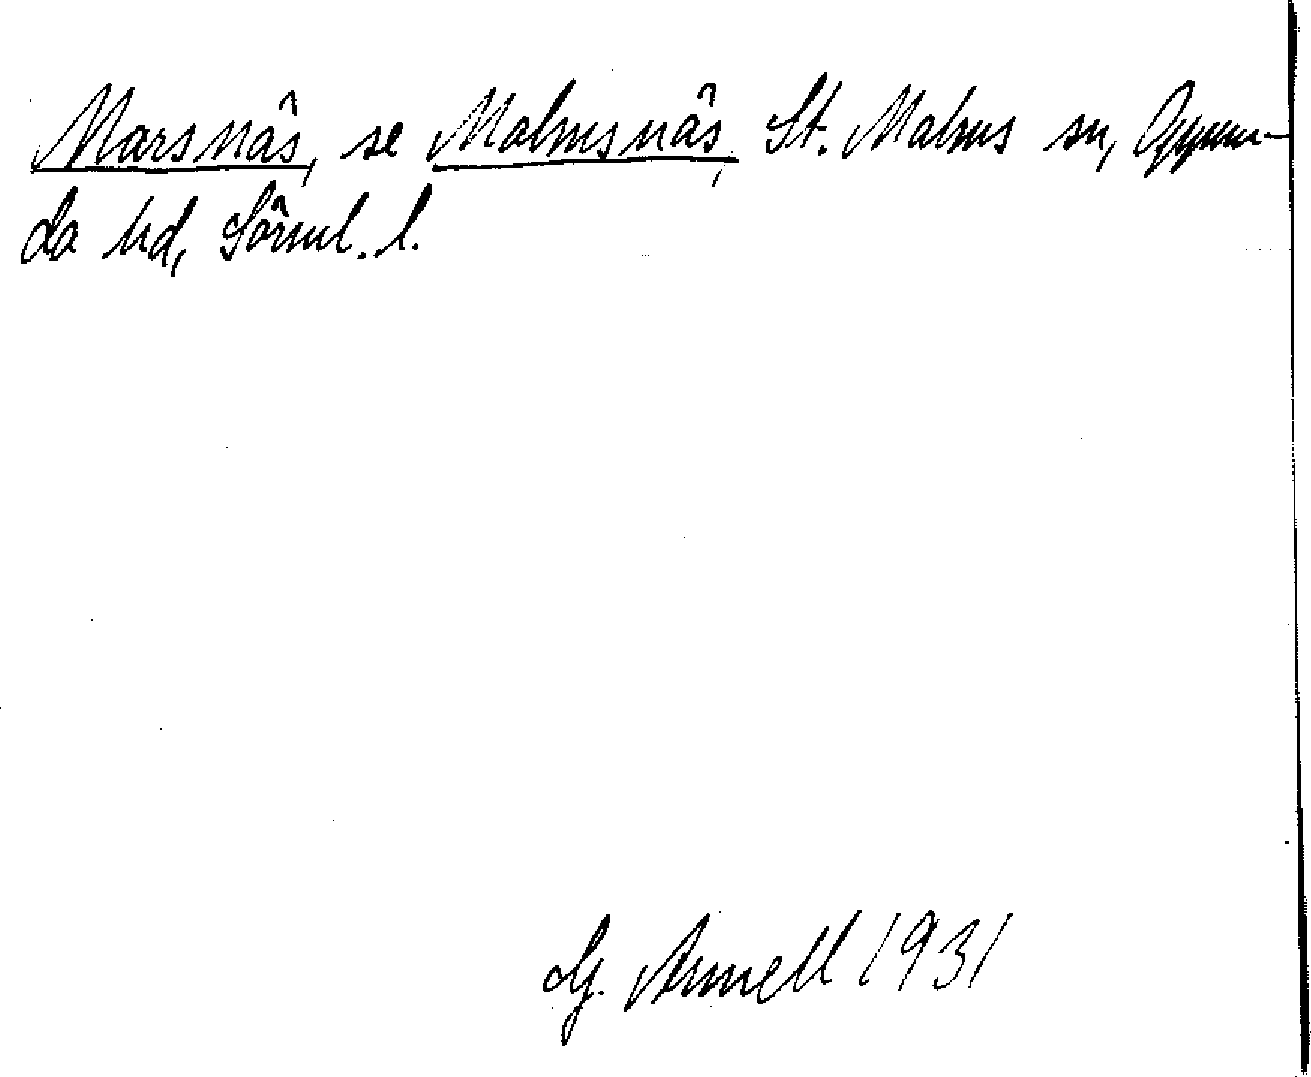 Marsnäs, se Malmsnäs, St. Malms sn, Oppun-
da hd, Sörml. l.
G. Arnell 1931